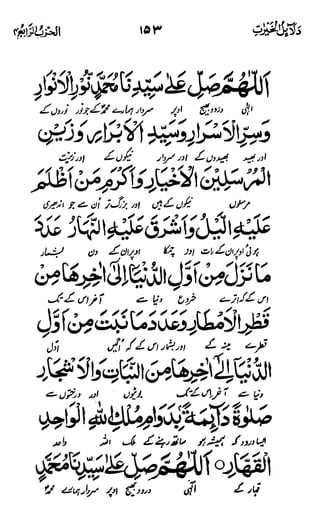 دلائل الخیرات ۱۵۳ الحزب الرابع
اَللّٰهُمَّ صَلِّ عَلٰى سَيِّدِنَا مُحَمَّدٍ نُّوْرِ الْاَنْوَارِ
الٰہی درود بھیج اوپر سردار ہمارے محمدؐ کے جو نور نوروں کے
وَسِرِّ الْاَسْرَارِ وَسَيِّدِ الْاَبْرَارِ وَزَيْنِ
اور بھید بھیدوں کے اور سردار نیکوں کے اور زینت
الْمُرْسَلِيْنَ الْاَخْيَارِ وَاَكْرَمِ مَنْ اَظْلَمَ
مرسلوں نیکوں کے ہیں اور بزرگ تر اُن سے جو اندھیری
عَلَيْهِ الَّيْلُ وَاَشْرَقَ عَلَيْهِ النَّهَارُ عَدَدَ
ہوئی اوپر ان کے رات اور چمکا اوپر ان کے دن بشمار
مَا نَزَلَ مِنْ اَوَّلِ الدُّنْيَا اِلٰى اٰخِرِهَا مِنْ
اس کے کہ اترے شروع دنیا سے آخر اس کے تک
قَطْرِ الْاَمْطَارِ وَعَدَدَ مَا نَبَتَ مِنْ اَوَّلِ
قطرے مینہ کے اور بشمار اس کے کہ اُگیں اوّل
الدُّنْيَا اِلٰى اٰخِرِهَا مِنَ النَّبَاتِ وَالْاَشْجَارِ
دنیا سے آخر اس کے تک بوٹیوں اور درختوں سے
صَلٰوةً دَآئِمَةً بِدَوَامِ مُلْكِ اللّٰهِ الْوَاحِدِ
ایسا درود کہ ہمیشہ ہو ساتھ رہنے کے ملک اللہ واحد
الْقَهَّارِ ۝ اَللّٰهُمَّ صَلِّ عَلٰى سَيِّدِنَا مُحَمَّدٍ
قہار کے الٰہی درود بھیج اوپر سردار ہمارے محمدؐ